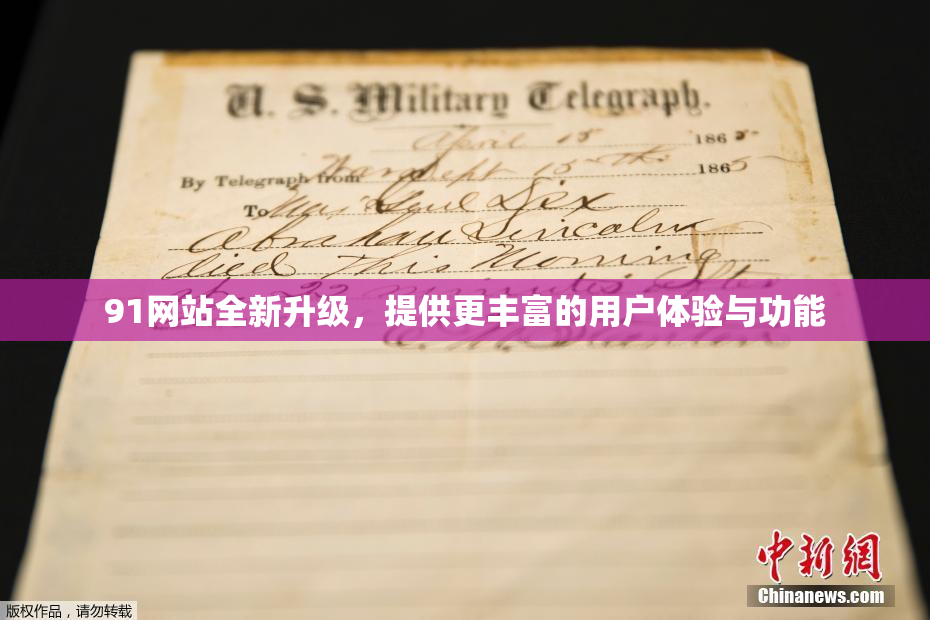 U. S. Military Telegraph.
April 15 1865
By Telegraph from War Dept 15th 1865
To Maj Genl Dix
Abraham Lincoln
died This Morning
at 22 minutes after
91网站全新升级，提供更丰富的用户体验与功能
中新网
Chinanews.com
版权作品，请勿转载